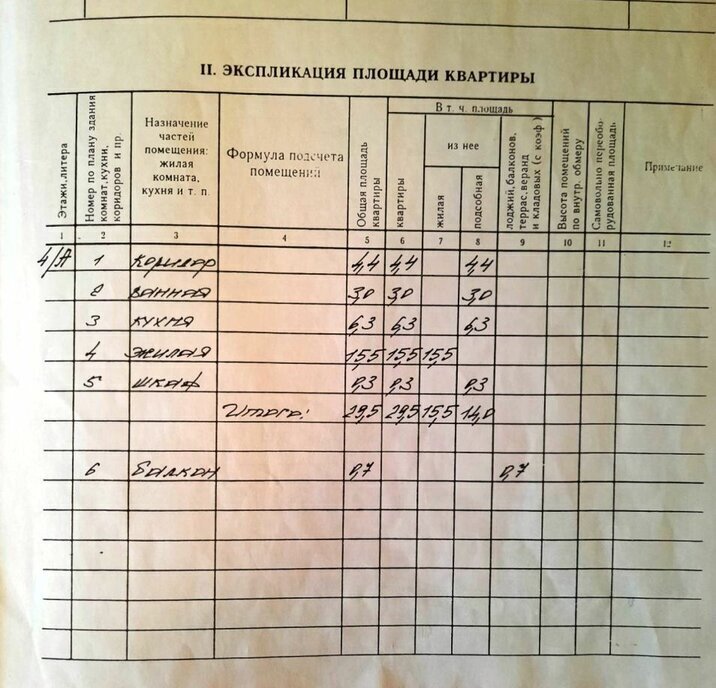 II. ЭКСПЛИКАЦИЯ ПЛОЩАДИ КВАРТИРЫ
Этажи, литера
Номер по плану здания комнат, кухни, коридоров и пр.
Назначение частей помещения: жилая комната, кухня и т. п.
Формула подсчета помещений
Общая площадь квартиры
В т. ч. площадь
квартиры
из нее
жилая
подсобная
лоджий, балконов, террас, веранд и кладовых (с коэф)
Высота помещений по внутр. обмеру
Самовольно переоборудованная площадь
Примечание
1 2 3 4 5 6 7 8 9 10 11 12
4/А 1 коридор 4,4 4,4 4,4
2 ванная 3,0 3,0 3,0
3 кухня 6,3 6,3 6,3
4 жилая 15,5 15,5 15,5
5 шкаф 0,3 0,3 0,3
Итого: 29,5 29,5 15,5 14,0
6 балкон 0,7 0,7